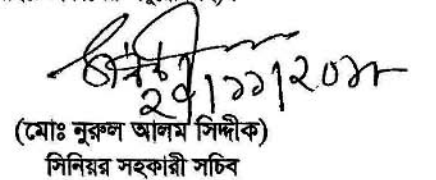 ২৭/১১/২০১৮
(মোঃ নুরুল আলম সিদ্দীক)
সিনিয়র সহকারী সচিব